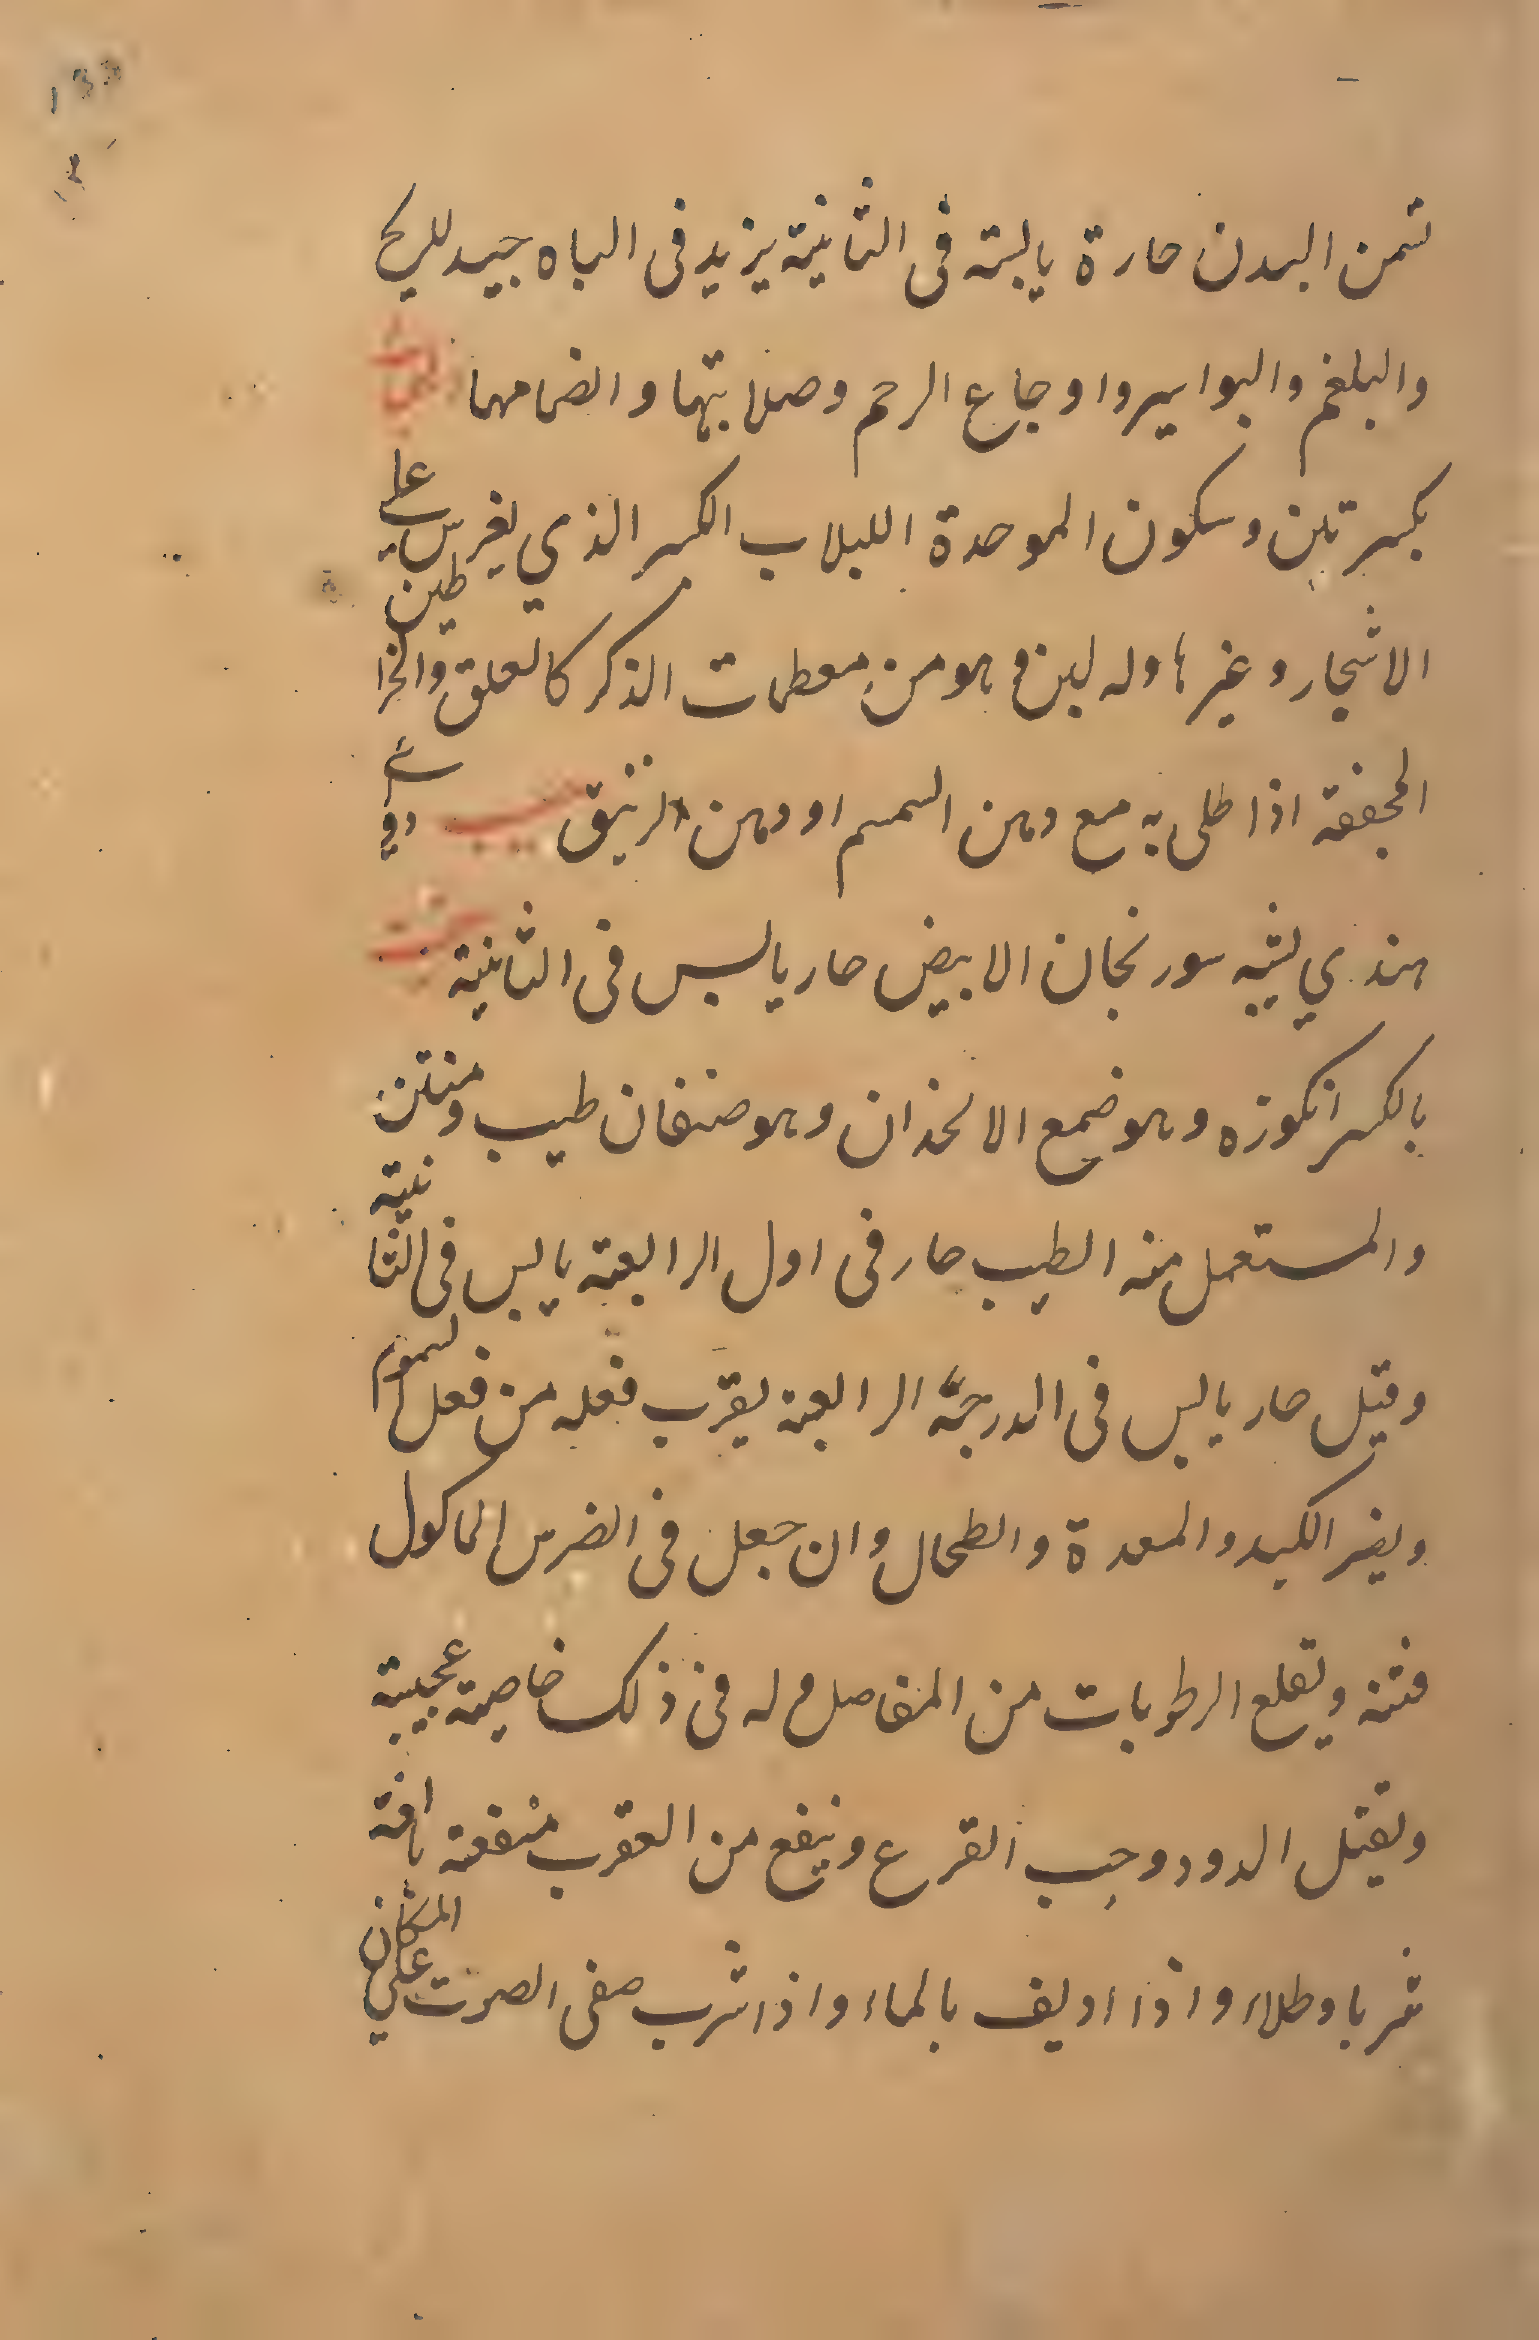 تسمن البدن حارة يابسة فى الثانية يزيد فى الباه جيد للريح
والبلغم والبواسير واوجاع الرحم وصلابتها وانضمامها
بكسرتين وسكون الموحدة اللبلاب الكبير الذي يغرس على
الاشجار وغيرها وله لبن وهو من معظمات الذكر كالعلق والخراطين
المجففة اذا طلى به مع دهن السمسم او دهن الزنبق دواء
هندي يشبه سورنجان الابيض حار يابس فى الثانية
بالكسر انكوزه وهو ضمغ الانخذان وهو صنفان طيب ومنتن
والمستعمل منه الطيب حار فى اول الرابعة يابس فى الثانية
وقيل حار يابس فى الدرجة الرابعة يقرب فعله من فعل السموم
ويضر الكبد والمعدة والطحال وان جعل فى الضرس الماكول
فتته ويقلع الرطوبات من المفاصل وله فى ذلك خاصية عجيبة
ويقتل الدود وحب القرع وينفع من العقرب منفعة
شربا وطلاء واذا اديف بالماء واذا شرب صفى الصوت على المكان